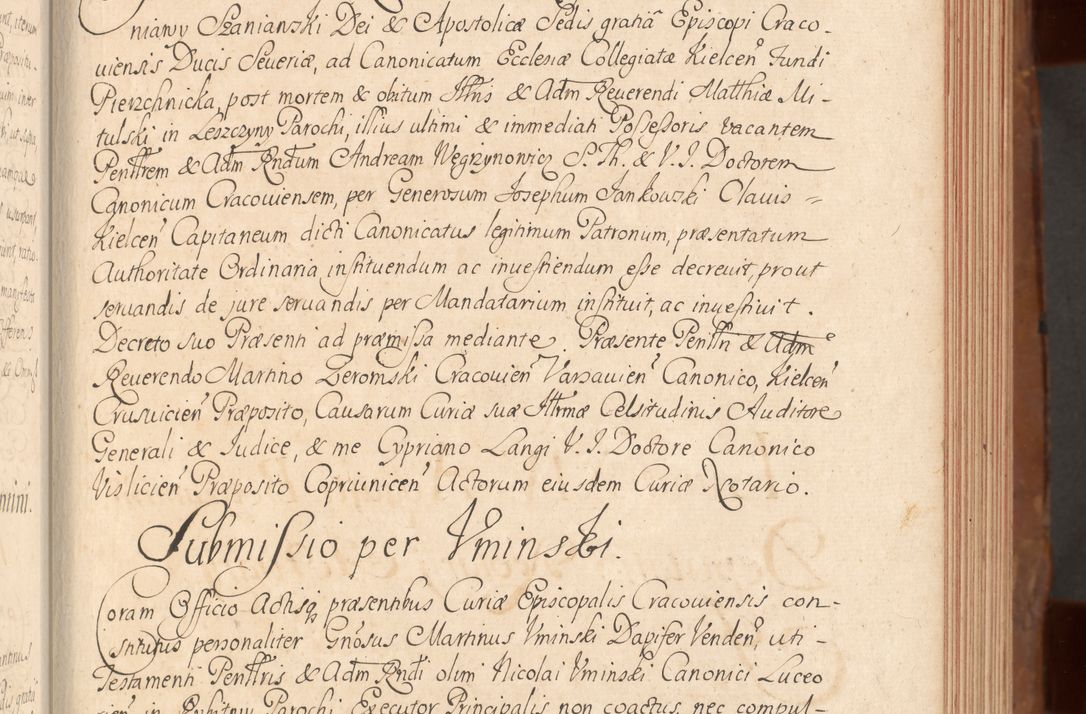 niawy Szaniawski Dei & Apostolicæ Sedis gratiâ Episcopi Craco-
viensis Ducis Severiæ, ad Canonicatum Ecclesiæ Collegiatæ Kielceñ Fundi
Pierzchnicka, post mortem & obitum Illris & Adm Reverendi Matthiæ Mi-
tulski in Leszczyny Parochi, illius ultimi & immediati Possessoris vacantem
Penlltrem & Adm Rndum Andream Węgrzynowicz S. Th. & V. I. Doctorem
Canonicum Cracoviensem, per Generosum Josephum Jankowski Clavis =
Kielceñ Capitaneum dicti Canonicatus legitimum Patronum, præsentatum
Authoritate Ordinaria instituendum ac investiendum esse decrevit, prout
servandis de jure servandis per Mandatarium instituit, ac investivit.
Decreto suo Præsenti ad præmissa mediante. Præsente Penlltri & Adm
Reverendo Martino Zeromski Cracovieñ Varsavieñ Canonico, Kielceñ
Crusvicieñ Præposito, Causarum Curiæ suæ Illrmæ Celsitudinis Auditore
Generali & Iudice, & me Cypriano Langi V. I. Doctore Canonico
Vislicieñ Præposito Copriuniceñ Actorum eiusdem Curiæ Notario.
Submissio per Vminski.
Coram Officio Actisq præsentibus Curiæ Episcopalis Cracoviensis con-
stitutus personaliter Gnosus Martinus Vminski Dapifer Vendeñ, uti-
Testamenti Penlltris & Adm Rndi olim Nicolai Vminski Canonici Luceo
Parochi Executor Principalis non coactus, nec compul-